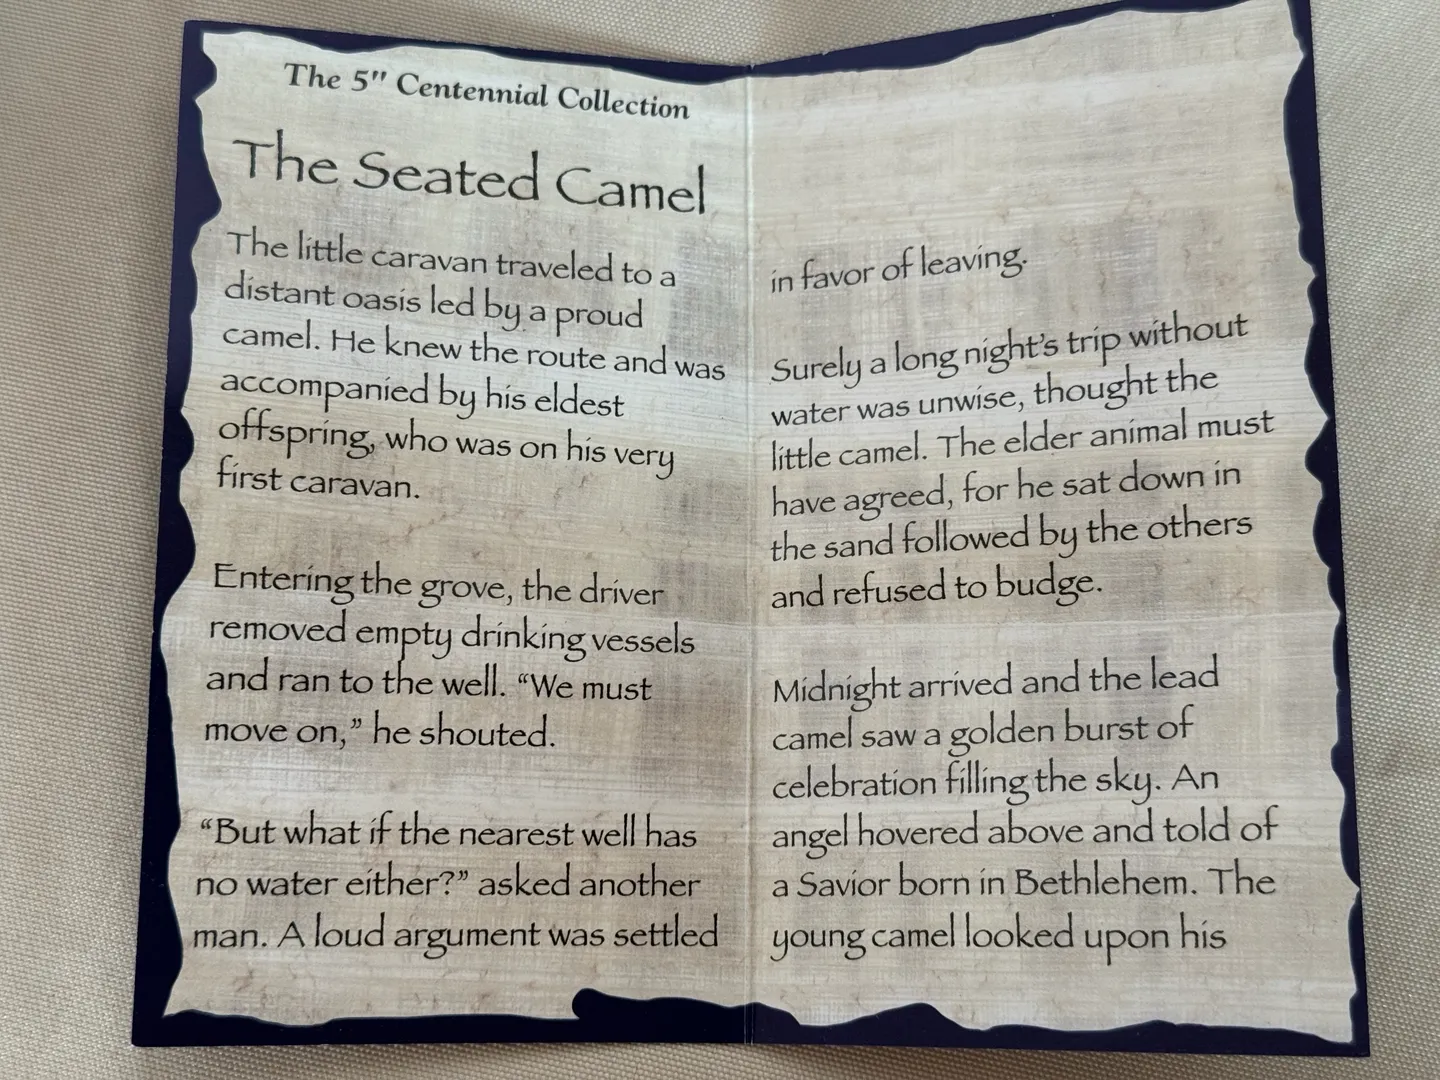 The 5" Centennial Collection
The Seated Camel
The little caravan traveled to a
distant oasis led by a proud
camel. He knew the route and was
accompanied by his eldest
offspring, who was on his very
first caravan.
Entering the grove, the driver
removed empty drinking vessels
and ran to the well. “We must
move on,” he shouted.
“But what if the nearest well has
no water either?” asked another
man. A loud argument was settled
in favor of leaving.
Surely a long night’s trip without
water was unwise, thought the
little camel. The elder animal must
have agreed, for he sat down in
the sand followed by the others
and refused to budge.
Midnight arrived and the lead
camel saw a golden burst of
celebration filling the sky. An
angel hovered above and told of
a Savior born in Bethlehem. The
young camel looked upon his